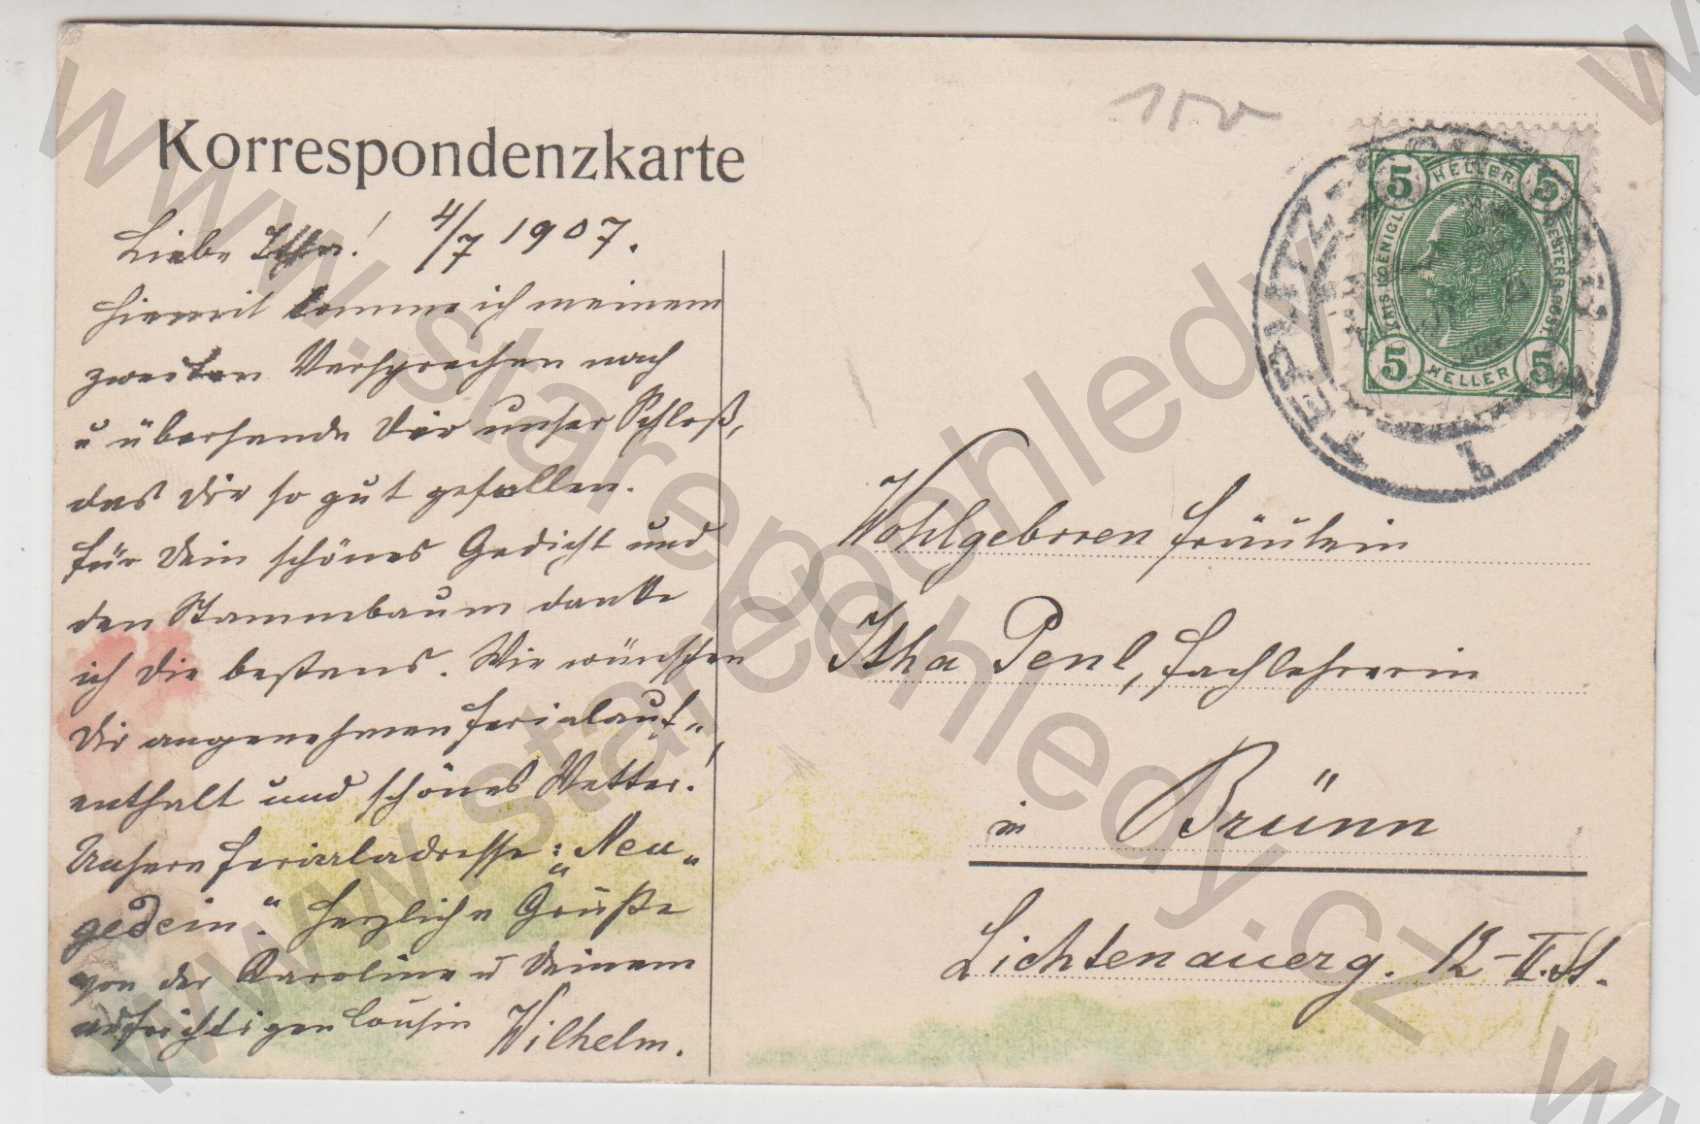 Korrespondenzkarte
Liebe Itha! 4/7 1907.
Hiermit komme ich meinem
zweiten Versprechen nach
u übersende Dir unser Schloß,
das Dir so gut gefallen.
Für Dein schönes Gedicht und
den Stammbaum danke
ich Dir bestens. Wir wünschen
Dir angenehmen Ferialauf„
enthalt und schönes Wetter!
Unsere Ferialadresse: „Neu„
gedein“. Herzliche Grüße
von der Karoline u Deinem
aufrichtigen Cousin Wilhelm.
150
5 HELLER 5
KAIS KOENIGL OESTERR POST
5 HELLER 5
TEPLITZ
1
Wohlgeboren Fräulein
Itha Penl, Fachlehrerin
in Brünn
Lichtenauerg. 12-II.St.
www.starepohledy.cz
www.starepohledy.cz